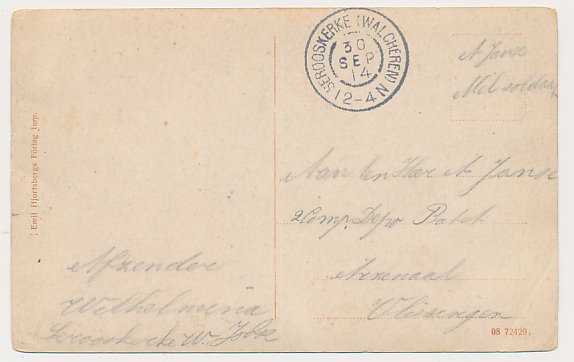 SEROOSKERKE (WALCHEREN)
30
SEP
14
12-4 N
A Janse
Mil soldaa
Aan den Heer A Janse
2 Comp. Depo Batal
Arsenaal
Vlissingen
Afzender
Wilhelmina
Serooskerke W.
Emil Hjortsbergs Förlag Imp.
08 72429